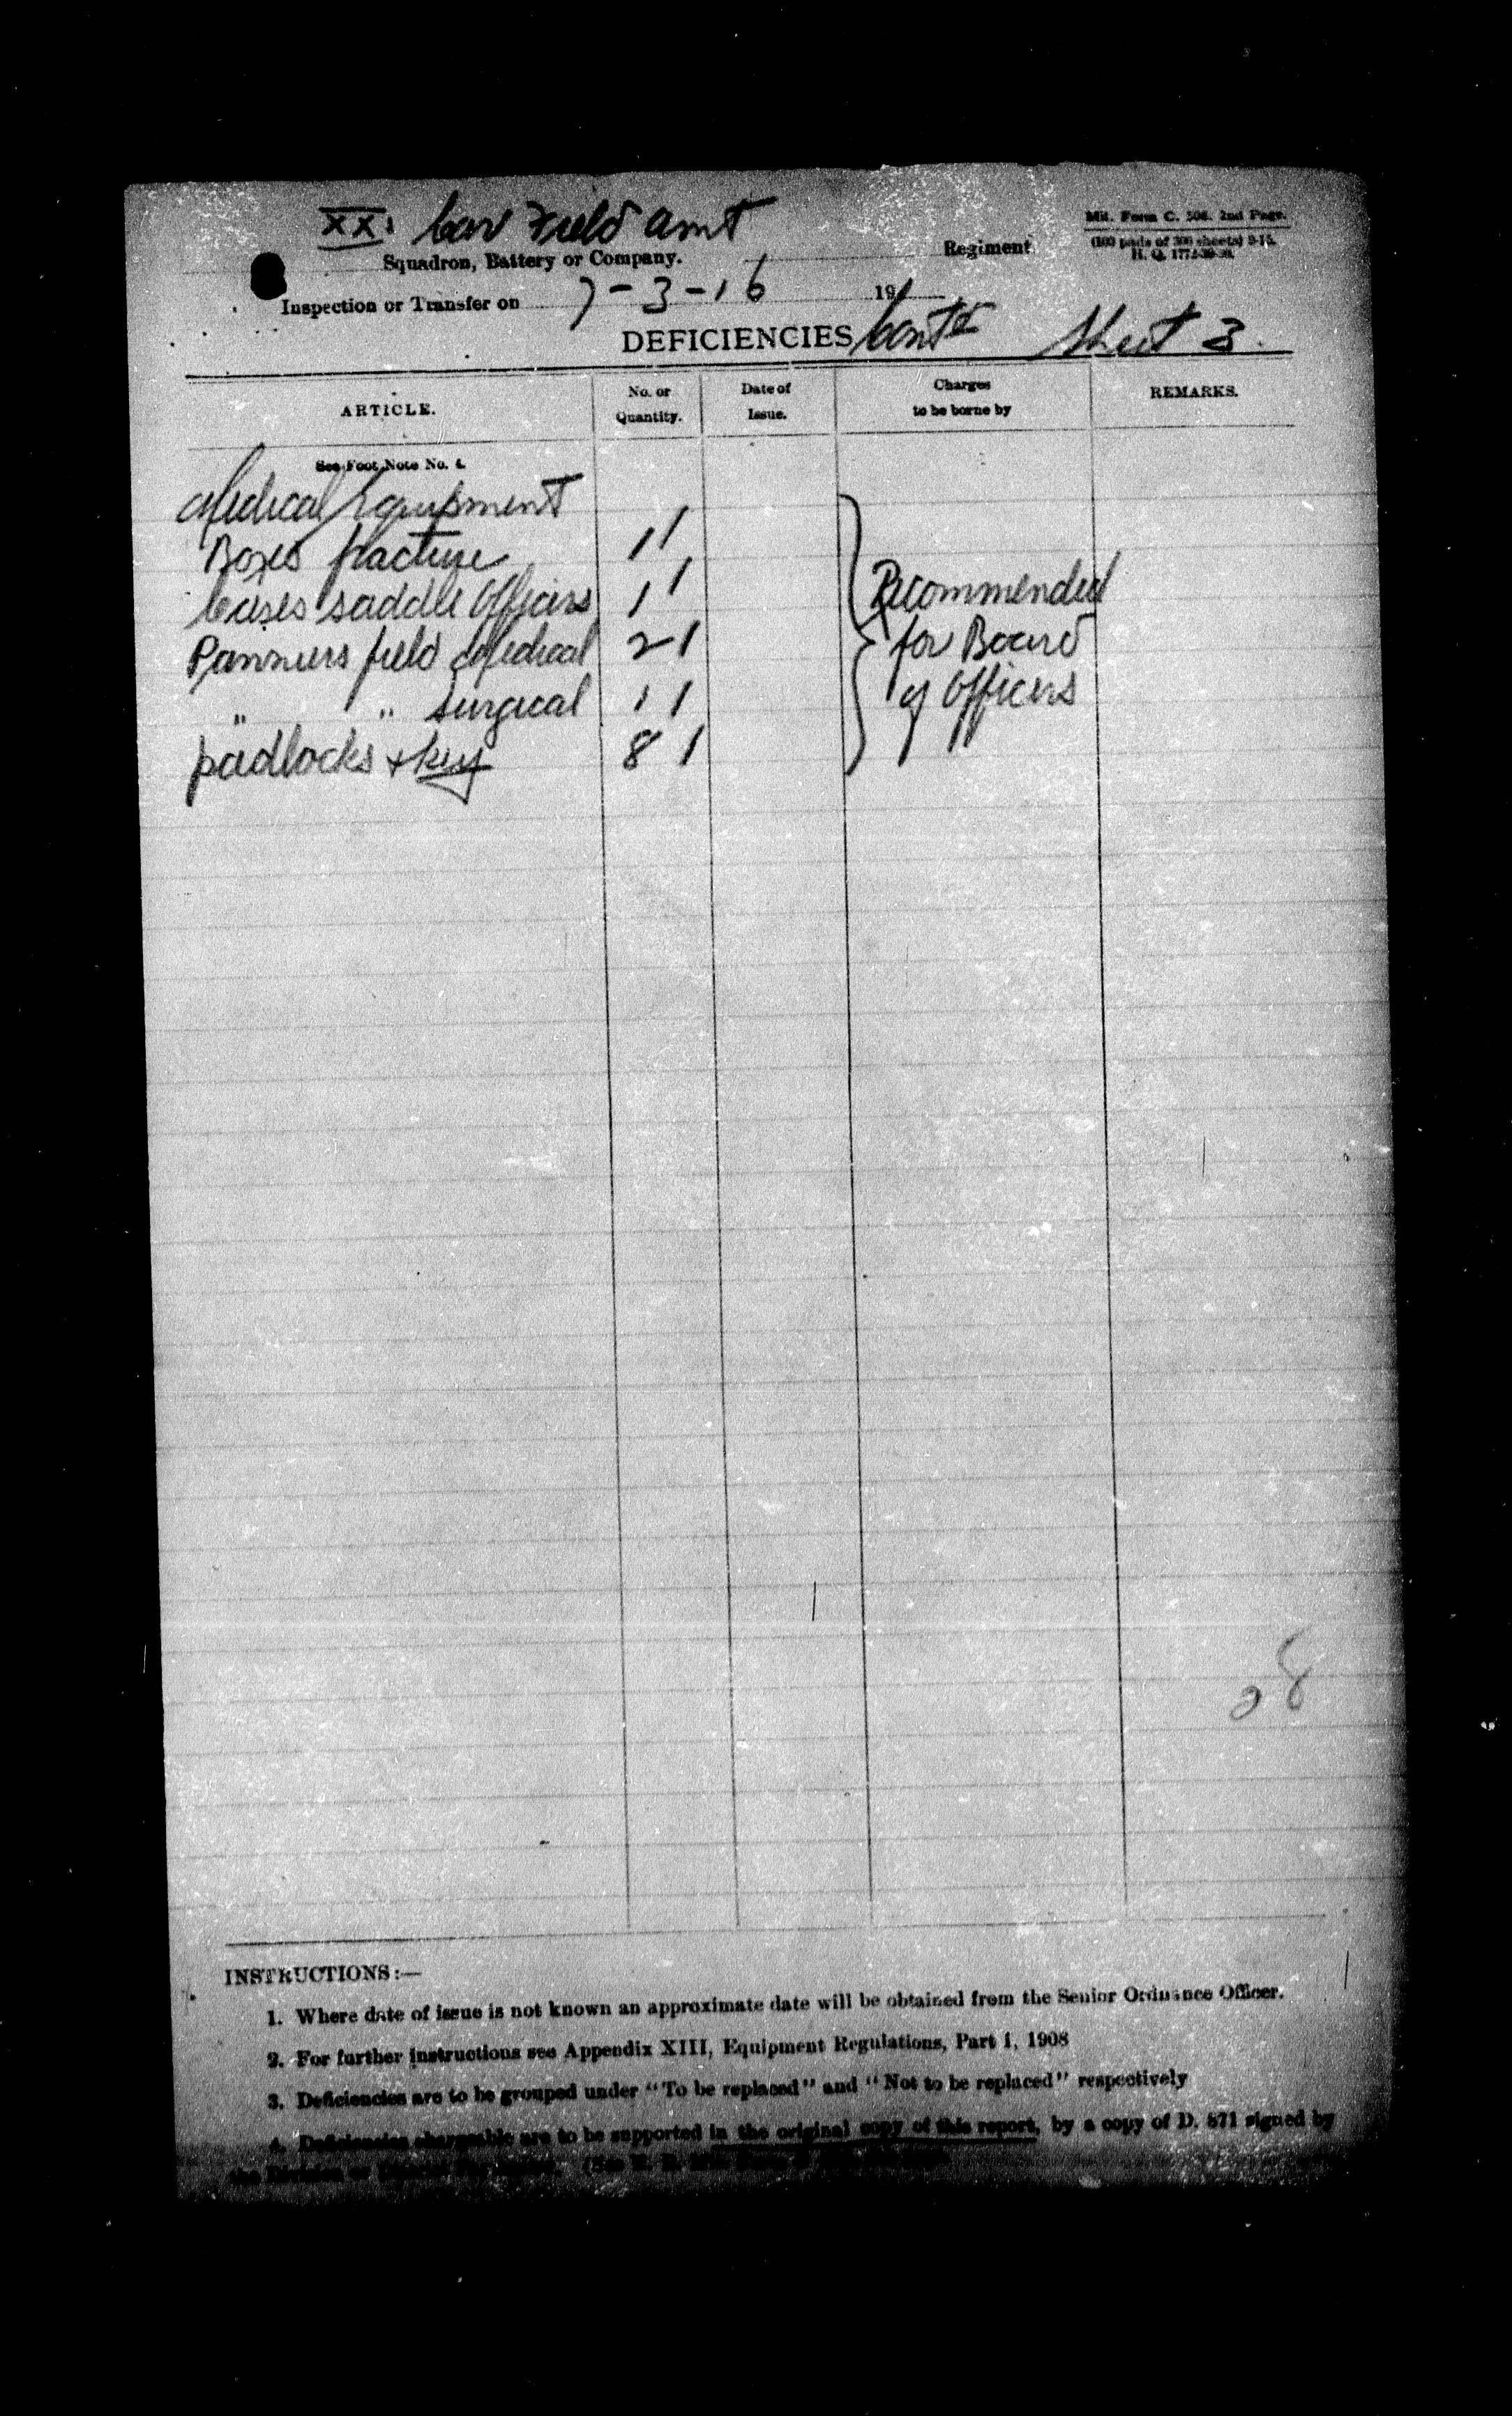 XXI Cav Field Amt
Squadron, Battery or Company.
Regiment
Mil. Form C. 508. 2nd Page.
(100 pads of 300 sheets) 9-15.
H. Q. 1772-39-
Inspection or Transfer on 7-3-16 191
DEFICIENCIES Contd Sheet 3.
ARTICLE. No. or Quantity. Date of Issue. Charges to be borne by REMARKS.
See Foot Note No. 4.
Medical Equipment
Boxes fracture 1 /
Cases saddle Officers 1 /
Panniers field Medical 2 /
" " Surgical 1 /
padlocks + key 8 /
Recommended
for Board
of Officers
INSTRUCTIONS:—
1. Where date of issue is not known an approximate date will be obtained from the Senior Ordnance Officer.
2. For further instructions see Appendix XIII, Equipment Regulations, Part 1, 1908
3. Deficiencies are to be grouped under "To be replaced" and "Not to be replaced" respectively
4. Deficiencies chargeable are to be supported in the original copy of this report, by a copy of D. 871 signed by
the Division or